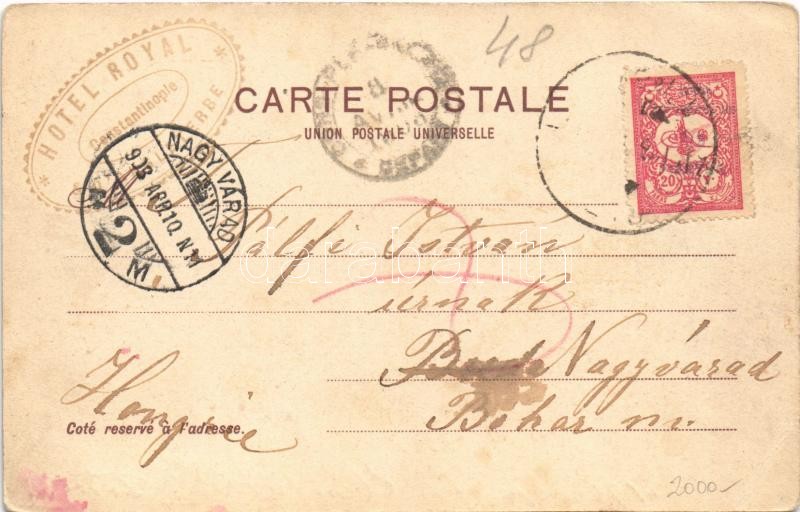 48
HOTEL ROYAL
Constantinople
CARTE POSTALE
UNION POSTALE UNIVERSELLE
NAGYVÁRAD
903 ÁPR. 10. N.
2
M
20
Pálfi István
úrnak
Nagyvárad
Bihar m.
Hongrie
Coté reservé à l'adresse.
darabanth
2000